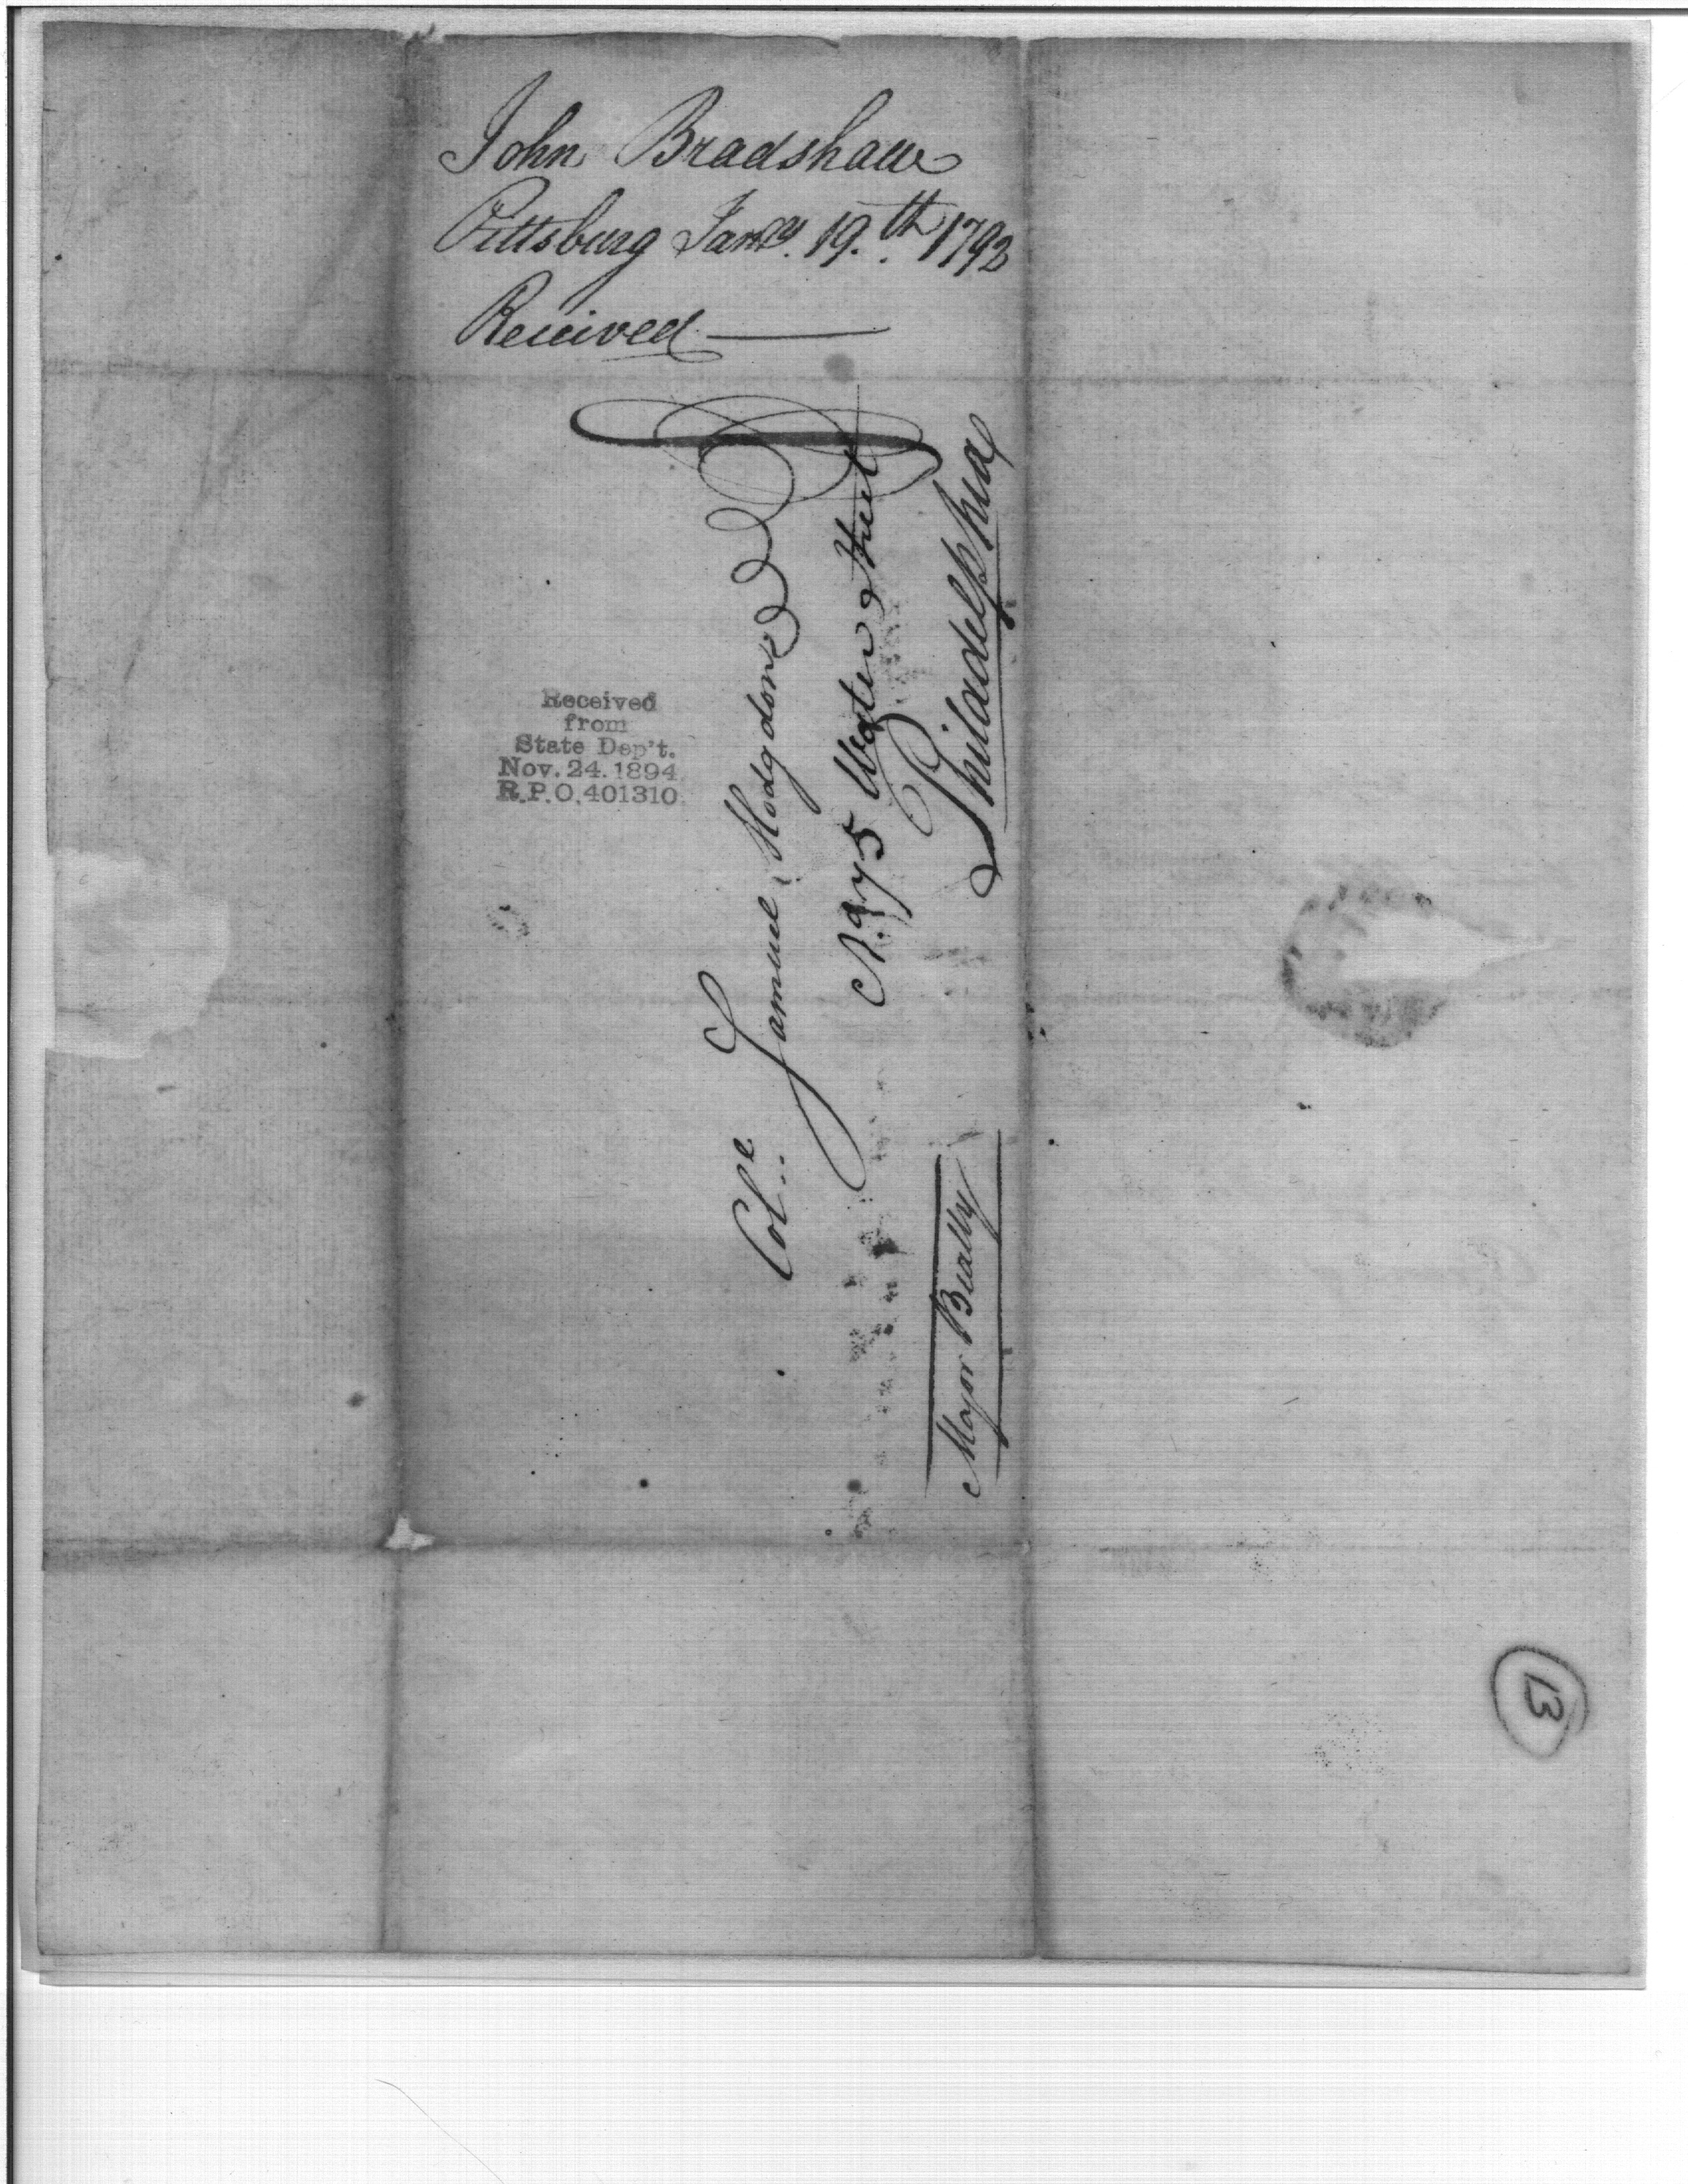 John Bradshaw
Pittsburg Jany. 19.th 1792
Received
Received
from
State Dep't.
Nov. 24. 1894
R.P.O. 401310
Coll. Samuel Hodgdon
No. 75 Water Street
Philadelphia
Major Beatty
13